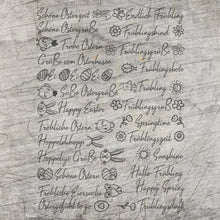 Schöne Osterzeit
Endlich Frühling
Schöne Ostergrüße
Frühlingskind
Frohe Ostern
Frühlingsgrüße
Grüße vom Osterhasen
Frühlingsbote
Frühling
Süße Ostergrüße
Happy Easter
Frühlingsgruß
Fröhliche Ostern
Springtime
Hoppeldihopp
Frühlingszeit
Hoppelige Grüße
Sunshine
Schöne Ostern
Hello Frühling
Fröhliche Eiersuche
Happy Spring
Ostergefühl to go
Frühlingshaft